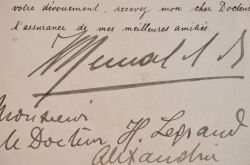 votre dévouement, recevez mon cher Docteur
l'assurance de mes meilleures amitiés.
Monsieur
le Docteur H. Legrand
Alexandrie